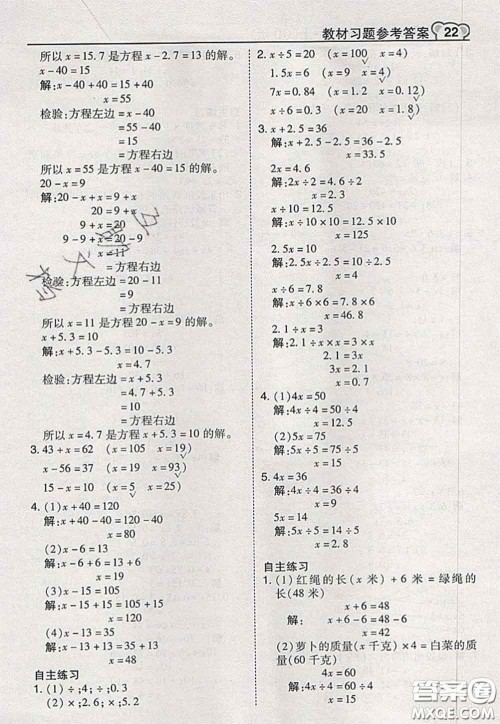 教材习题参考答案 22
所以 x=15.7 是方程 x-2.7=13 的解。
x-40=15
解:x-40+40=15+40
x=55
检验:方程左边=x-40
=55-40
=15
=方程右边
所以 x=55 是方程 x-40=15 的解。
20-x=9
解:20-x+x=9+x
20=9+x
9+x=20
9-9+x=20-9
x=11
检验:方程左边=20-11
=9
=方程右边
所以 x=11 是方程 20-x=9 的解。
x+5.3=10
解:x+5.3-5.3=10-5.3
x=4.7
检验:方程左边=x+5.3
=4.7+5.3
=10
=方程右边
所以 x=4.7 是方程 x+5.3=10 的解。
3. 43+x=62 (x=105 x=19) √
x-56=37 (x=19 x=93) √
15-x=10 (x=5 x=25) √
4. (1)x+40=120
解:x+40-40=120-40
x=80
(2)x-6=13
解:x-6+6=13+6
x=19
(3)x-15=4
解:x-15+15=4+15
x=19
(4)x-13=35
解:x-13+13=35+13
x=48
自主练习
1. (1)÷;4;÷;0.3
(2)×;2.6;×;2.6
2. x÷5=20 (x=100 √ x=4)
1.5x=6 (x=4 √ x=9)
7x=0.84 (x=1.2 x=0.12) √
x÷0.3=6 (x=20 x=1.8) √
3. x+2.5=36
解:x+2.5-2.5=36-2.5
x=33.5
2x=4.6
解:2x÷2=4.6÷2
x=2.3
x÷10=12.5
解:x÷10×10=12.5×10
x=125
2.5x=10
解:2.5x÷2.5=10÷2.5
x=4
x÷6=7.8
解:x÷6×6=7.8×6
x=46.8
2.1÷x=3
解:2.1÷x×x=3×x
2.1=3x
3x=2.1
x=0.7
4. (1)4x=50
解:4x÷4=50÷4
x=12.5
(2)5x=75
解:5x÷5=75÷5
x=15
5. 4x=36
解:4x÷4=36÷4
x=9
5x=14
解:5x÷5=14÷5
x=2.8
自主练习
1. (1)红绳的长(x 米)+6 米=绿绳的
长(48 米)
x+6=48
解:x+6-6=48-6
x=42
(2)萝卜的质量(x 千克)×4=白菜的质
量(60 千克)
4x=60
解:4x÷4=60÷4
x=15
答案圈
MXQE.COM